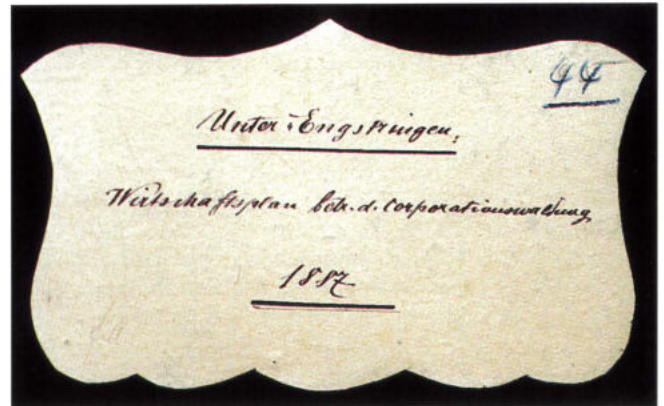 44
Unter-Engstringen,
Wirtschaftsplan betr. d. Corporationswaldung
1887